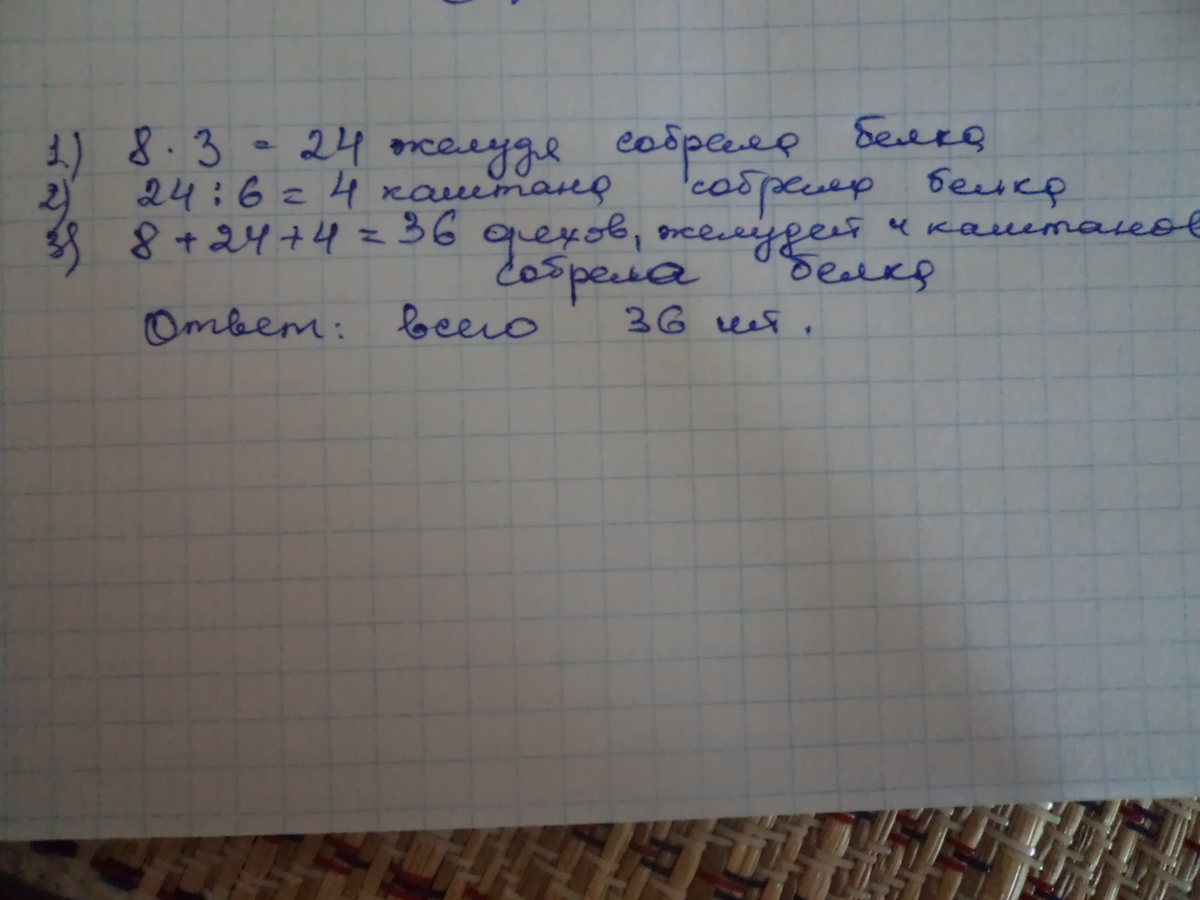 1.) 8 · 3 = 24 желудя собрала белка
2) 24 : 6 = 4 каштана собрала белка
3) 8 + 24 + 4 = 36 орехов, желудей и каштанов
собрала белка
Ответ: всего 36 шт.